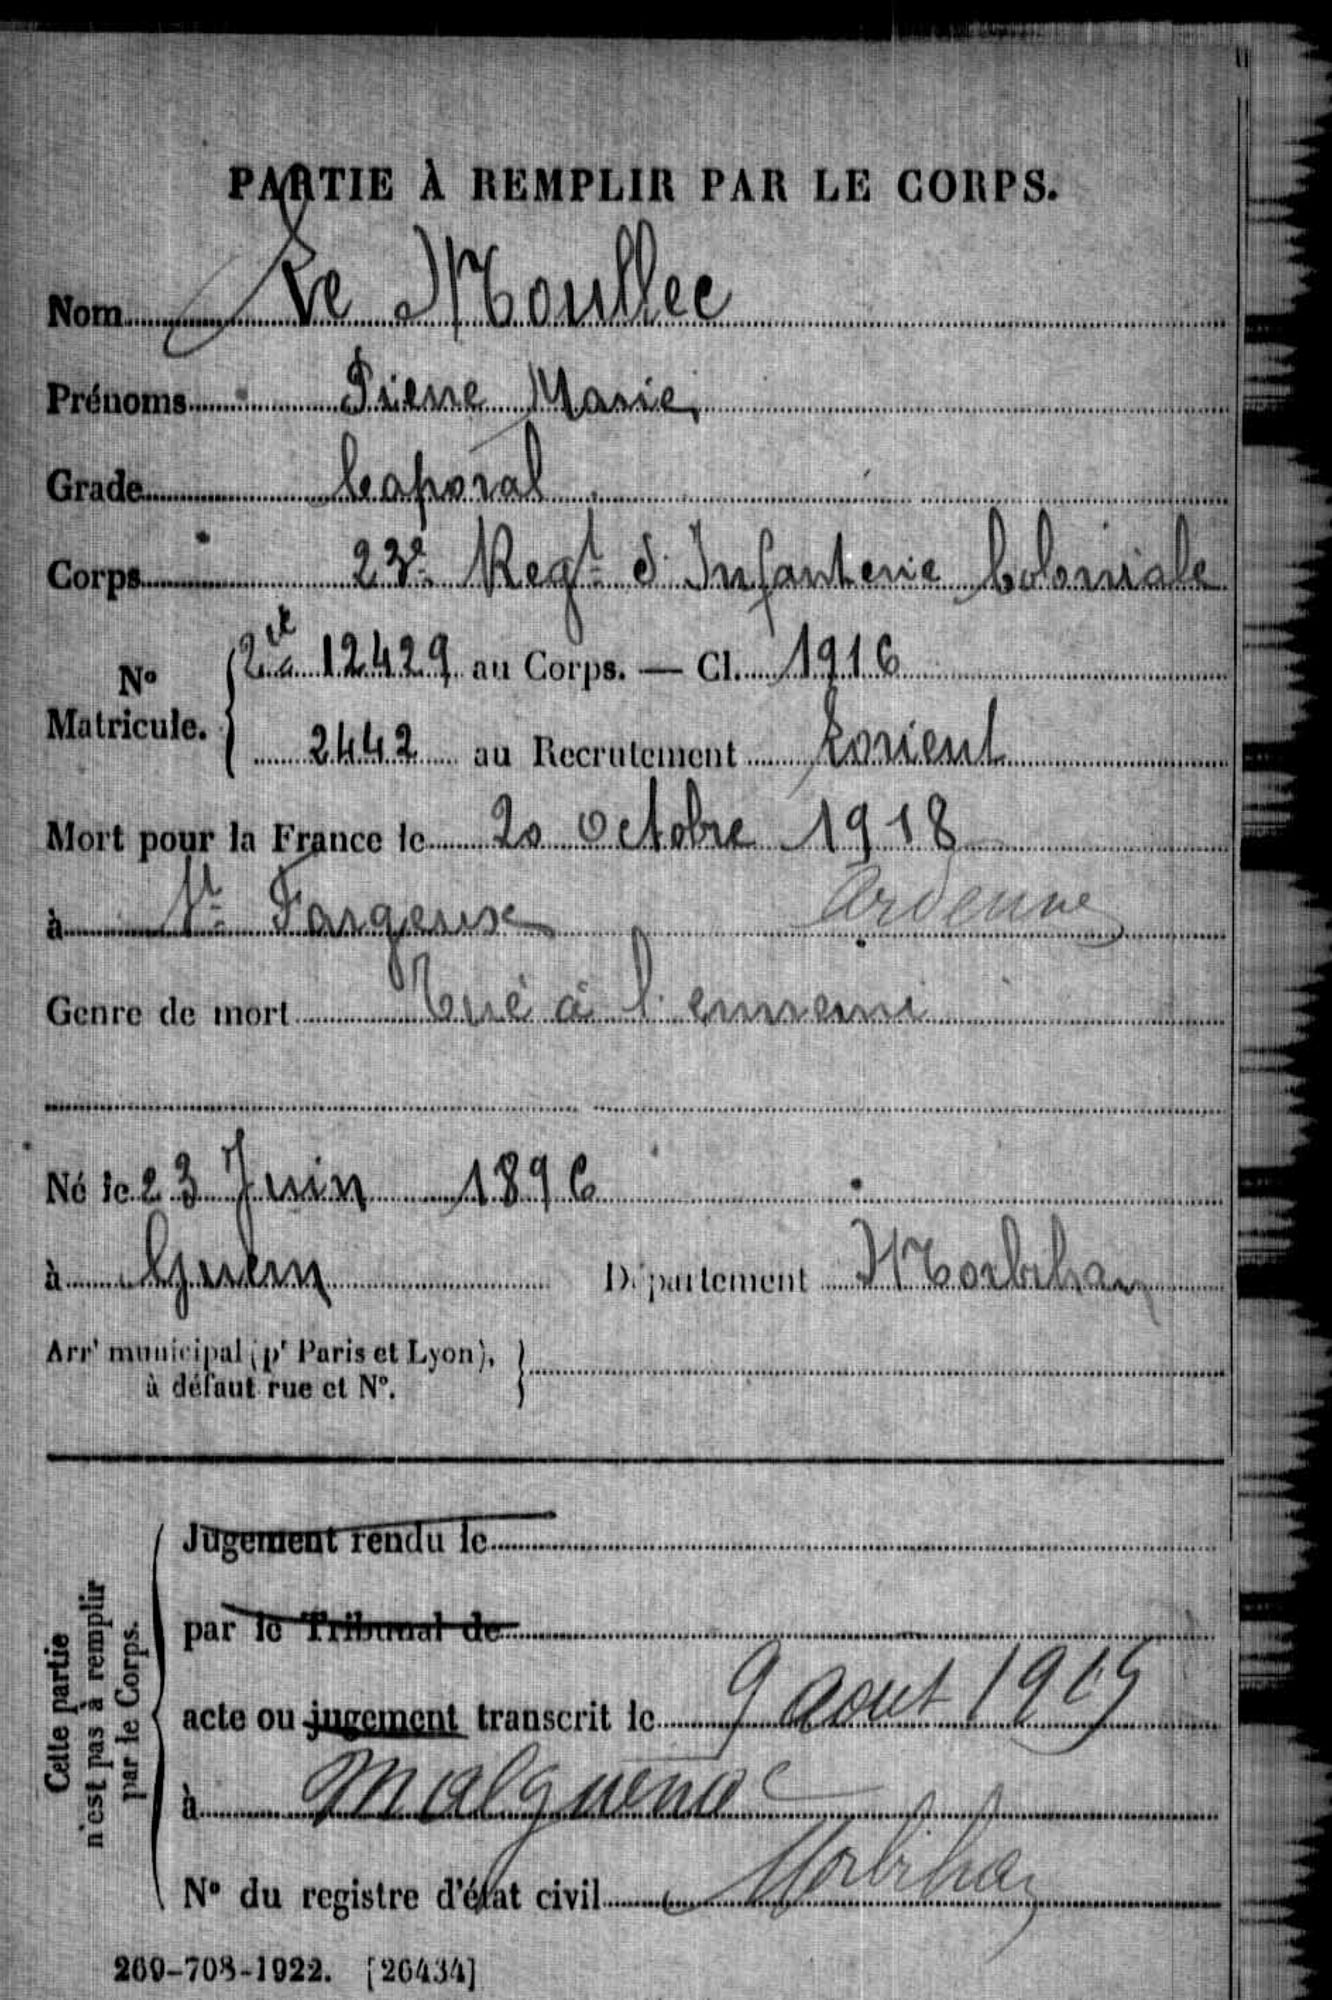 PARTIE À REMPLIR PAR LE CORPS.
Nom Le Moullec
Prénoms Pierre Marie
Grade Caporal
Corps 23e Regt d'Infanterie Coloniale
No Matricule. 12429 au Corps. — Cl. 1916
2442 au Recrutement Lorient
Mort pour la France le 20 Octobre 1918
à St Fargeux Ardennes
Genre de mort Tué à l'ennemi
Né le 23 Juin 1896
à Guern Département Morbihan
Arrt municipal (pr Paris et Lyon),
à défaut rue et No.
Cette partie
n'est pas à remplir
par le Corps.
Jugement rendu le
par le Tribunal de
acte ou jugement transcrit le 9 aout 1919
à Malguenac
Morbihan
No du registre d'état civil
269-708-1922. [26434]